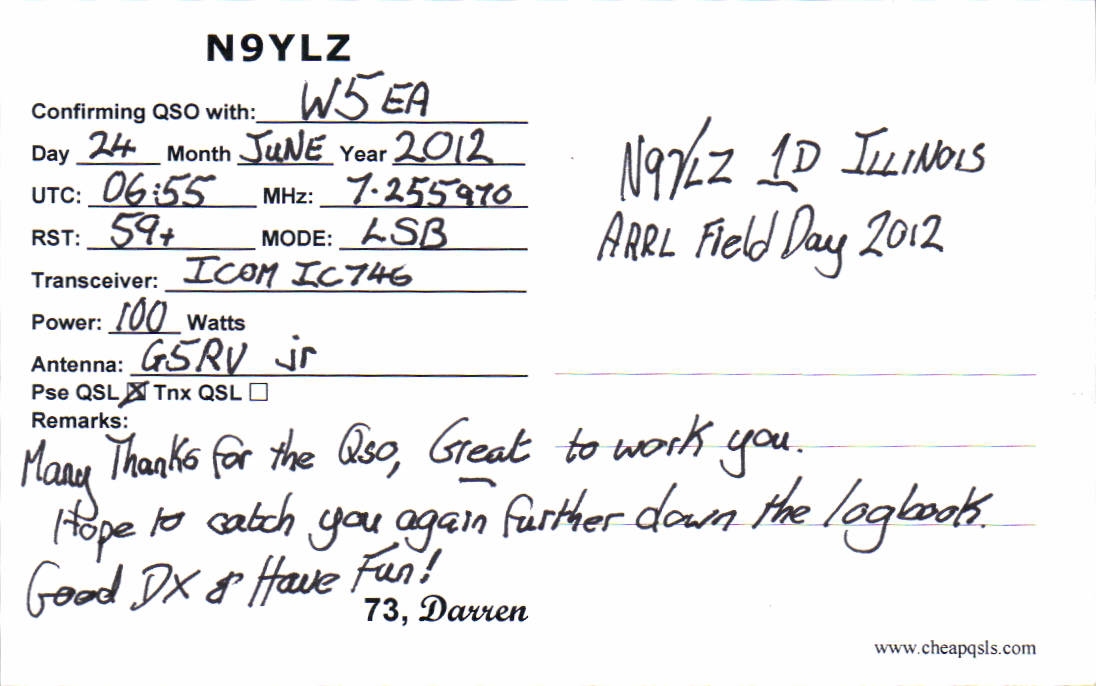 N9YLZ
Confirming QSO with: W5EA
Day 24 Month JUNE Year 2012
UTC: 06:55 MHz: 7.255970
RST: 59+ MODE: LSB
Transceiver: ICOM IC746
Power: 100 Watts
Antenna: G5RV jr
Pse QSL ☒ Tnx QSL ☐
Remarks:
Many Thanks for the Qso, Great to work you.
Hope to catch you again further down the logbook.
Good DX & Have Fun!
73, Darren
N9YLZ 1D ILLINOIS
ARRL Field Day 2012
www.cheapqsls.com